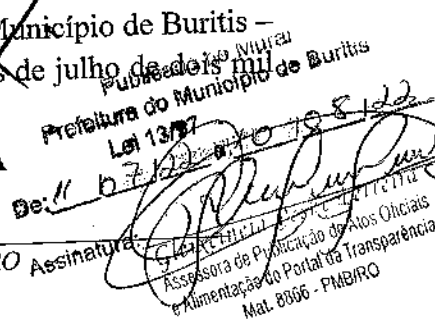 Município de Buritis –
de julho de dois mil
Publicado no Mural
Prefeitura do Município de Buritis
Lei 13/97
De: 11 07/22 a 10 08/22
Assinatura:
Assessora de Publicação de Atos Oficiais
e Alimentação do Portal da Transparência
Mat. 8866 - PMB/RO